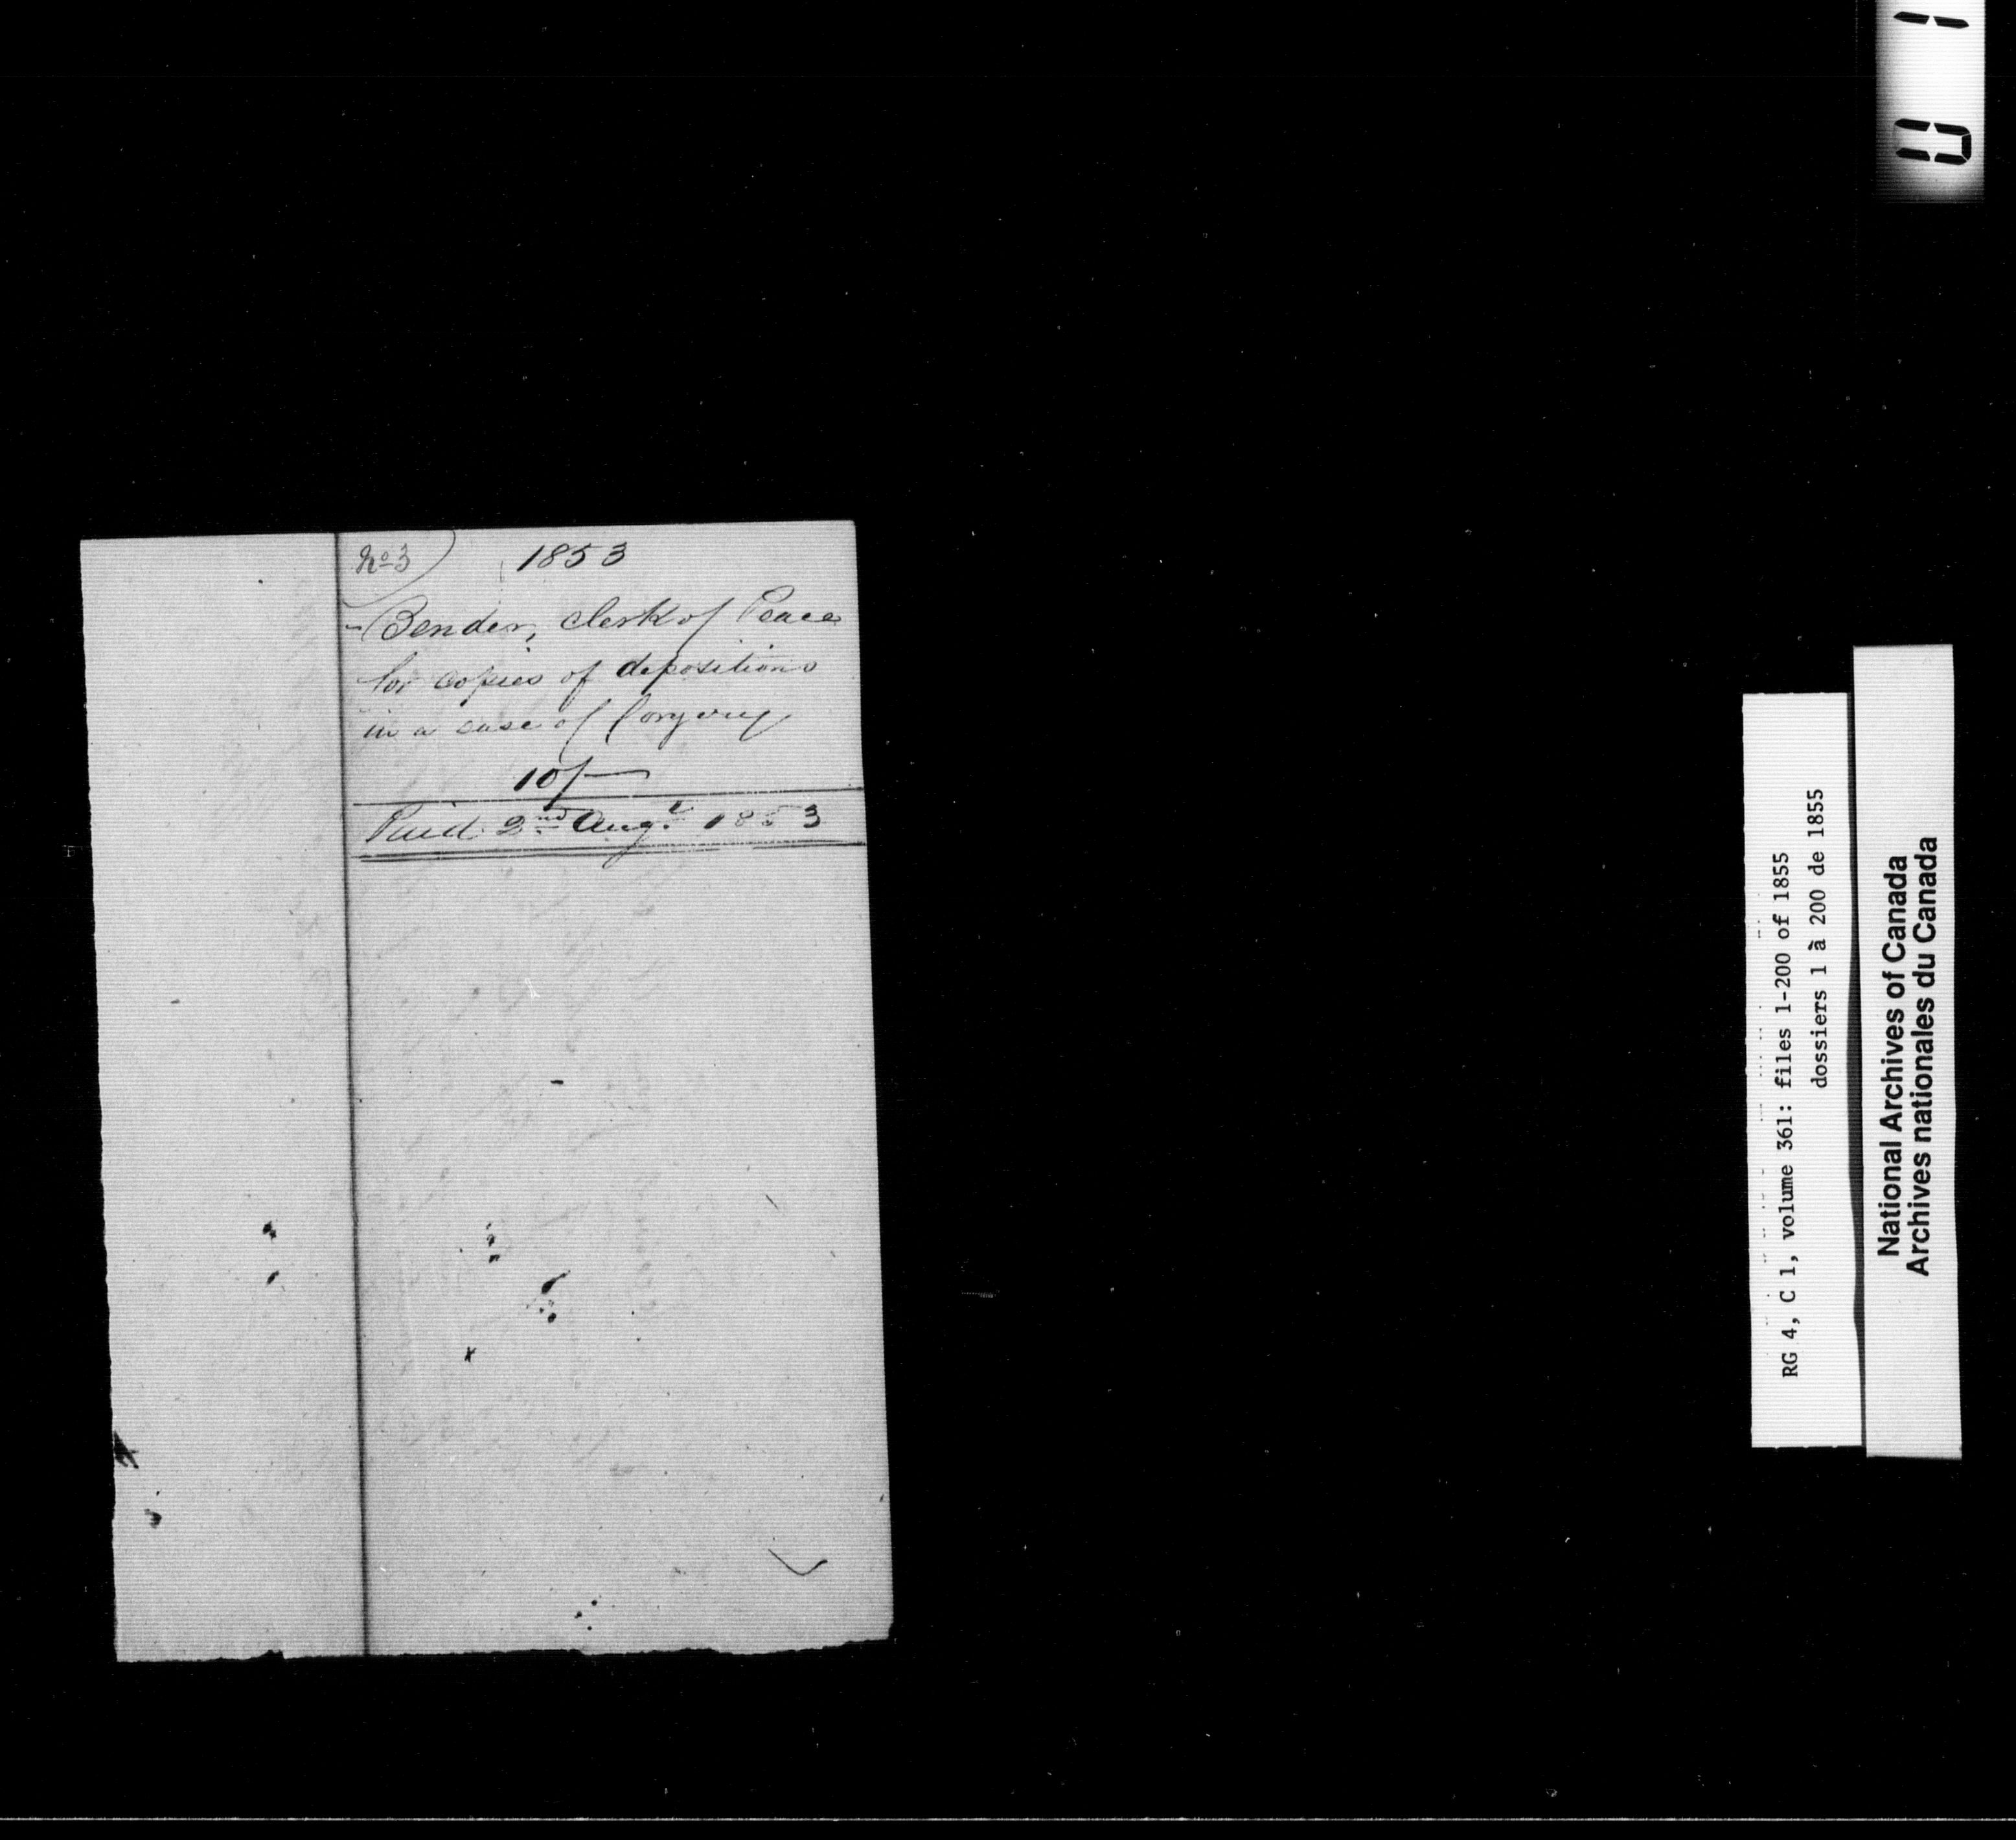 No 3
1853
Bender, Clerk of Peace
for copies of depositions
in a case of forgery
10/-
Paid 2nd Augt 1853
RG 4, C 1, volume 361: files 1-200 of 1855
dossiers 1 à 200 de 1855
National Archives of Canada
Archives nationales du Canada